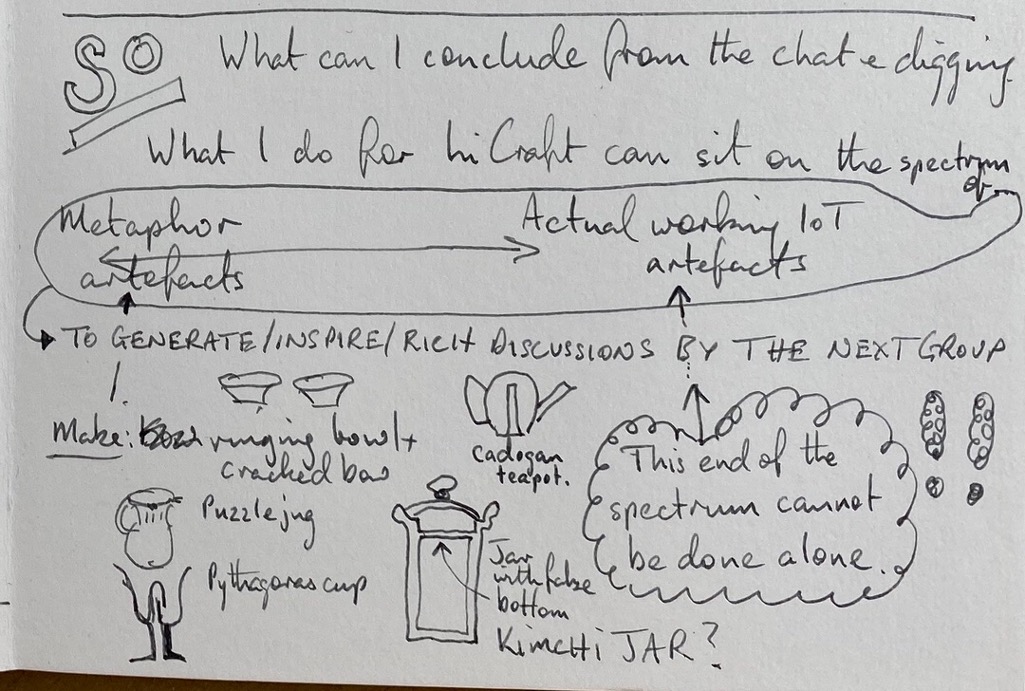 SO What can I conclude from the chat & digging.
What I do for hiCraft can sit on the spectrum
of
Metaphor
artefacts
Actual working IoT
artefacts
TO GENERATE/INSPIRE/RICH DISCUSSIONS BY THE NEXT GROUP
!
Make: ringing bowl +
cracked bow
Puzzle jug
Pythagoras cup
Cadogan
teapot.
Jar
with false
bottom
KIMCHI JAR?
This end of the
spectrum cannot
be done alone.
!!